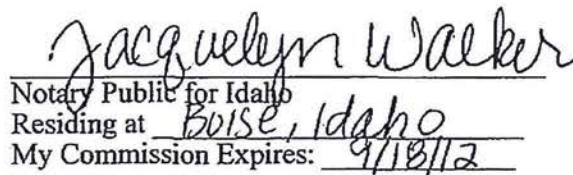 Jacquelyn Walker
Notary Public for Idaho
Residing at Boise, Idaho
My Commission Expires: 9/18/12